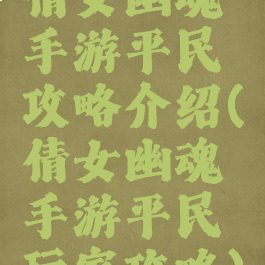 倩女幽魂
手游平民
攻略介绍(
倩女幽魂
手游平民
玩家攻略)